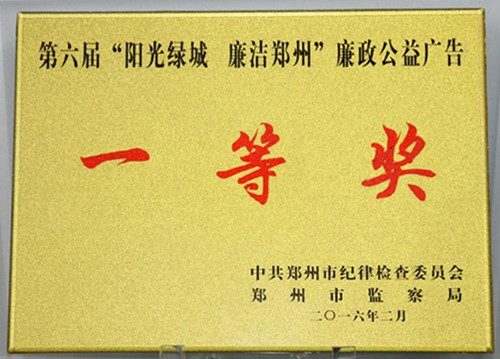 第六届“阳光绿城 廉洁郑州”廉政公益广告
一等奖
中共郑州市纪律检查委员会
郑州市监察局
二〇一六年二月